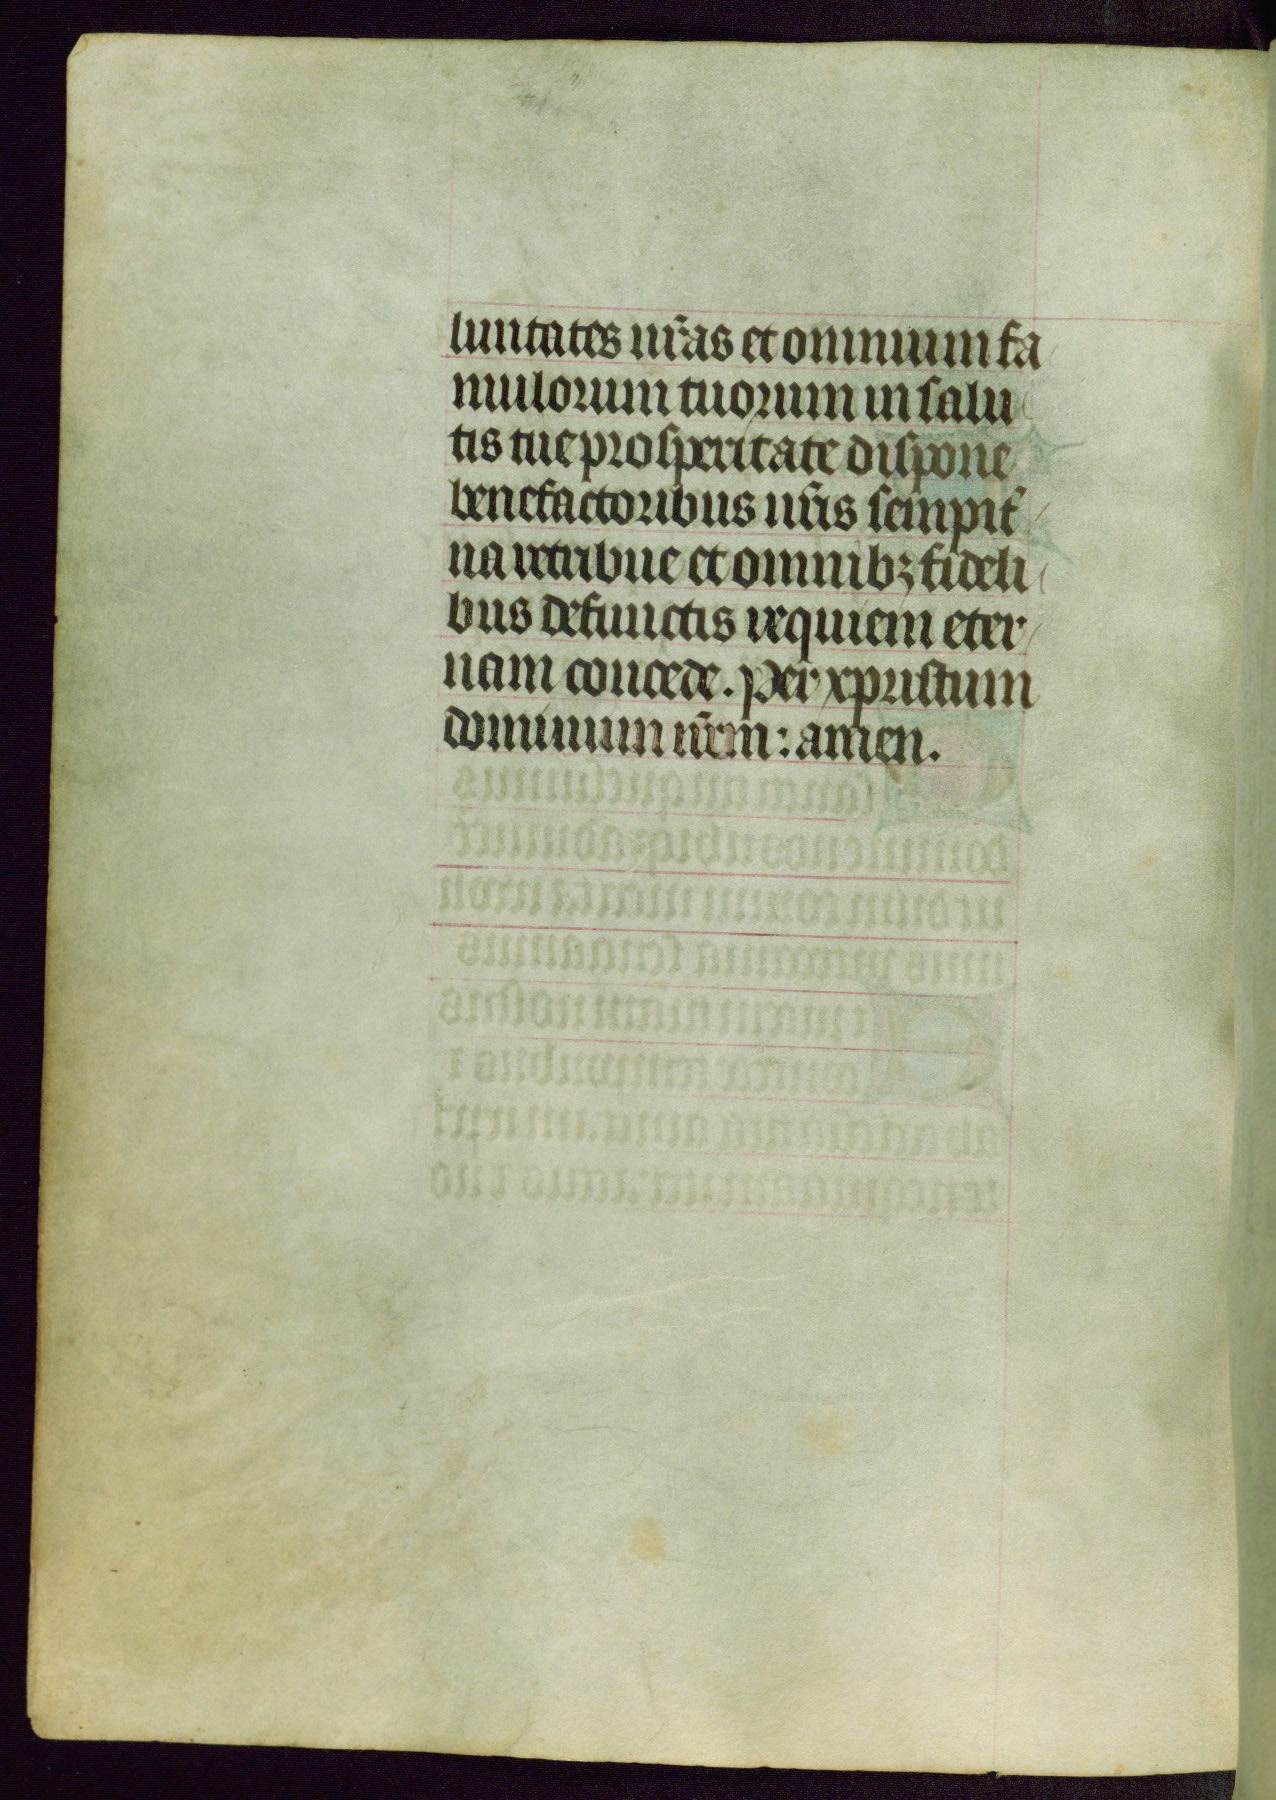 luntates nr̃as et omnium fa
mulorum tuorum in salu
tis tue prosperitate dispone
benefactoribus nr̃is sempit̾
na retribue et omnibꝫ fideli
bus defunctis requiem eter
nam concede. Per xpristum
dominum nr̃m : amen.